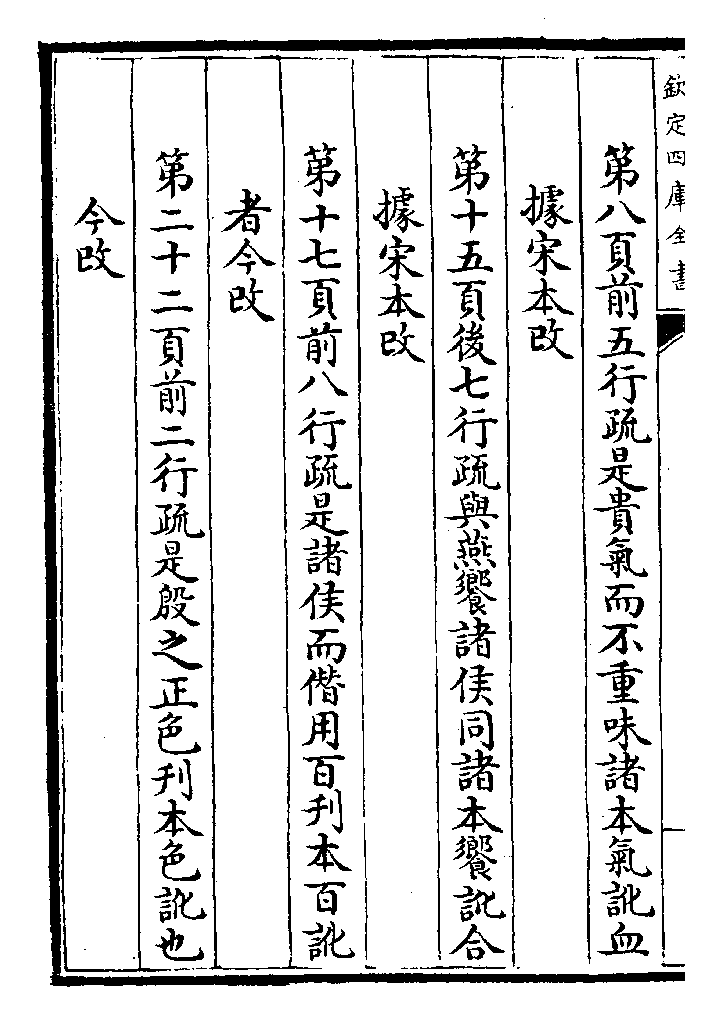 欽定四庫全書
第八頁前五行疏是貴氣而不重味諸本氣訛血
據宋本改
第十五頁後七行疏與燕饗諸侯同諸本饗訛合
據宋本改
第十七頁前八行疏是諸侯而僭用百刋本百訛
者今改
第二十二頁前二行疏是殷之正色刋本色訛也
今改